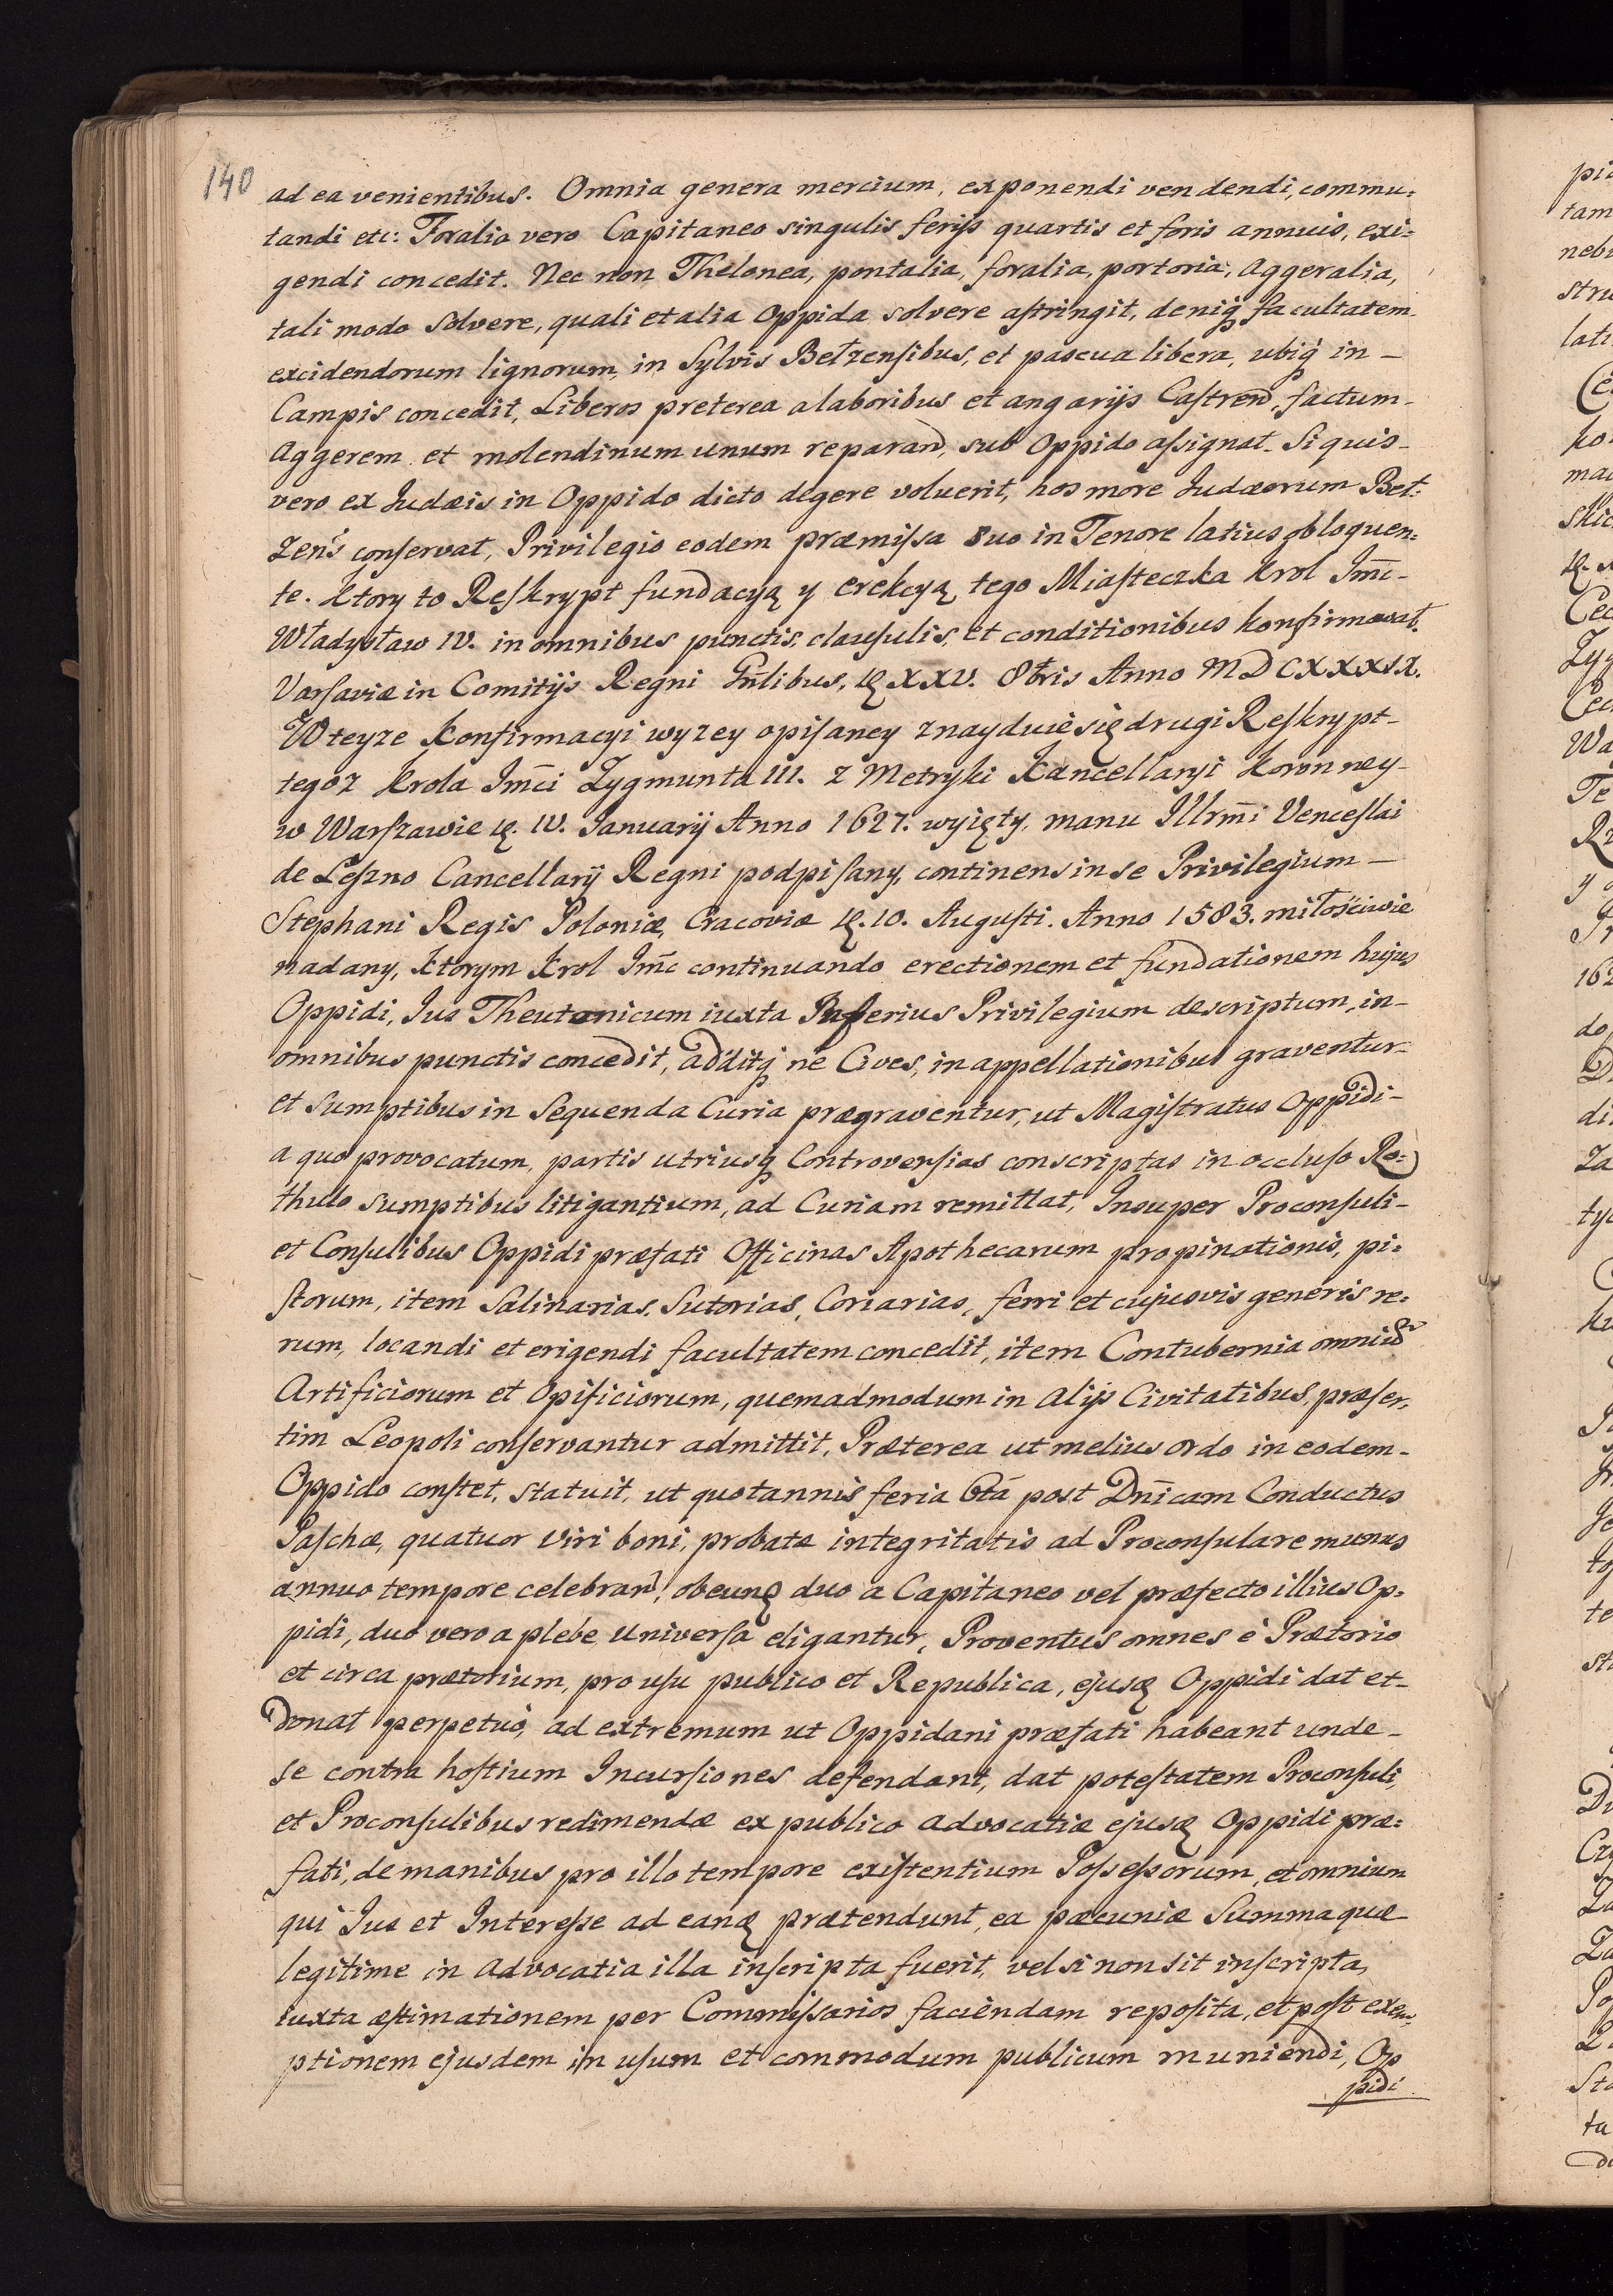 140
ad ea venientibus. Omnia genera mercium, exponendi vendendi, commu:
tandi etc: Foralia vero Capitaneo singulis ferijs quartis et foris annuis, exi:
gendi concedit. Nec non Thelonea, pontalia, foralia, portoria, Aggeralia,
tali modo solvere, quali et alia Oppida solvere astringit, deniq facultatem
excidendorum lignorum, in Sylvis Betzensibus, et pascua libera, ubiq in
Campis concedit, Liberos preterea a laboribus et angarijs Castrend, factum
Aggerem et molendinum unum reparand, sub Oppido assignat. Si quis
vero ex Iudæis in Oppido dicto degere voluerit, hos more Iudæorum Bet:
zens conservat, Privilegio eodem præmissa suo in Tenore latius obloquen:
te. Ktory to Reskrypt fundacyą y erekcyą tego Miasteczka Krol Jmc
Władysław IV. in omnibus punctis, clausulis, et conditionibus konfirmował.
Varsaviæ in Comitijs Regni Gnlibus, XXV. 8bris Anno MDCXXXIX.
W teyze Konfirmacyi wyzey opisaney znayduie się drugi Reskrypt
tegoz Krola Jmci Zygmunta III. z Metryki Kancellaryi Koronney
w Warszawie IV. Ianuarij Anno 1627. wyięty, manu Illrmi Venceslai
de Leszno Cancellarij Regni podpisany, continens in se Privilegium
Stephani Regis Poloniæ, Cracoviæ 10. Augusti. Anno 1583. miłościwie
nadany, Ktorym Krol Jmc continuando erectionem et fundationem hujus
Oppidi, Jus Theutonicum iuxta Inferius Privilegium descriptum, in
omnibus punctis concedit, additq ne Cives, in appellationibus graventur
et sumptibus in sequenda Curia prægraventur, ut Magistratus Oppidi
a quo provocatum, partis utriusq Controversias conscriptas in occluso Ro:
thulo sumptibus litigantium, ad Curiam remittat, Insuper Proconsuli
et Consulibus Oppidi præfati Officinas Apothecarum propinationis, pi:
storum, item Salinarias, Sutorias, Coriarias, ferri et cujusvis generis re:
rum, locandi et erigendi facultatem concedit, item Contubernia omniu
Artificiorum et Opificiorum, quemadmodum in alijs Civitatibus, præser,
tim Leopoli conservantur admittit, Præterea ut melius ordo in eodem
Oppido constet, statuit, ut quotannis feria 6tâ post Dnicam Conductus
Paschæ, quatuor Viri boni, probatæ integritatis ad Proconsulare munus
annuo tempore celebrand, obeund duo a Capitaneo vel præfecto illius Op:
pidi, duo vero a plebe Universa eligantur, Proventus omnes è Prætorio
et circa prætorium, pro usu publico et Republica, ejusd Oppidi dat et
Donat perpetuò, ad extremum ut Oppidani præfati habeant unde
se contra hostium Incursiones defendant, dat potestatem Proconsuli,
et Proconsulibus redimendæ ex publico advocatiæ ejusd Oppidi præ:
fati, de manibus pro illo tempore existentium Possessorum, et omnium
qui Jus et Interesse ad eand prætendunt, ea pæcuniæ Summa quæ
legitime in Advocatia illa inscripta fuerit, vel si non sit inscripta,
iuxta æstimationem per Commissarios faciendam reposita, et post exem
ptionem ejusdem in usum et commodum publicum muniendi, Op
pidi